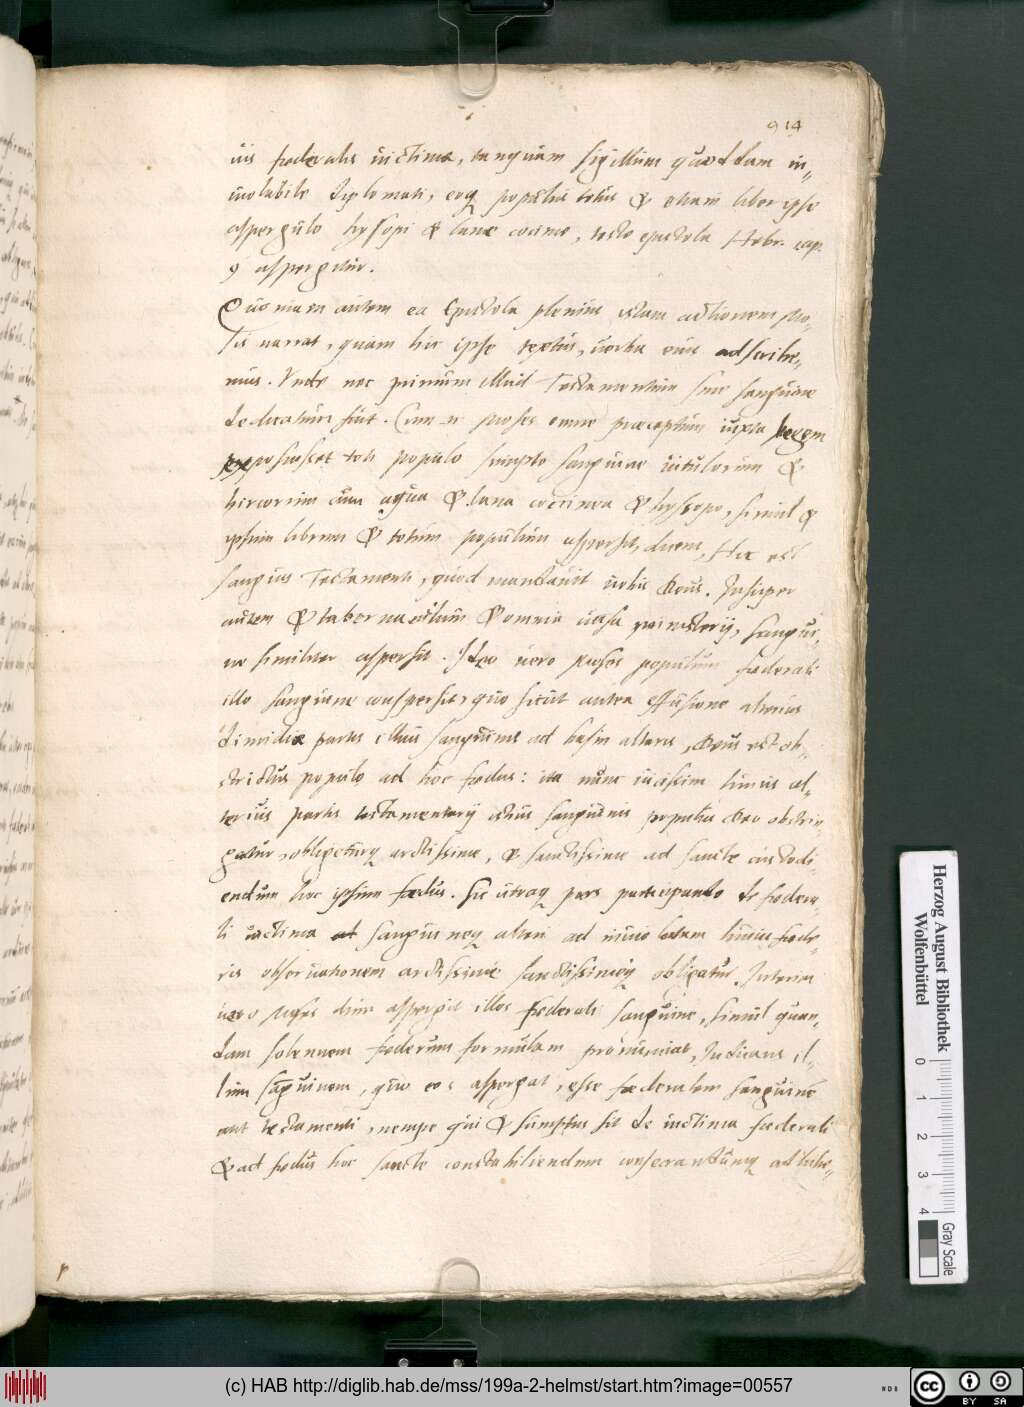 914
uis foederalis uictimae, tanquam sigillum quoddam in„
uiolabile diplomati, eoq populus totus & etiam liber ipse
aspergulo hysopi & lanae coccineae, teste epistola Hebr. cap.
9 aspergitur.
Quoniam autem ea Epistola plenius istam actionem Mo„
sis narrat, quam hic ipse textus, uerba eius adscribe„
mus. Vnde nec primum illud Testamentum sine sanguine
dedicatum fuit. Cum n. Moses omne praeceptum iuxta legem
exposuisset toti populo sumpto sanguine uitulorum &
hircorum cum aqua & lana coccinea & hyssopo, simul &
ipsum librum & totum populum aspersit, dicens, Hic est
sanguis Testamenti, quod mandauit uobis Deus. Insuper
autem & tabernaculum & omnia uasa ministerij, sangui„
ne similiter aspersit. Ideo uero Moses populum foederali
illo sanguine conspersit, quo sicut antea effusione alterius
dimidiae partis illius sanguinis ad basin altaris, Deus est ob„
strictus populo ad hoc foedus: ita nunc uicissim huius al„
terius partis testamentarij istius sanguinis populus Deo obstrin„
gatur, obligeturq arctissime, & sanctissime ad sancte custodi„
endum hoc ipsum foedus. Sic utraq pars participando de foedera„
li uictima et sanguineq altari ad inuiolatam huius foede„
ris obseruationem arctissime sanctissimeq obligatur. Interim
uero Moses dum aspergit illos foederali sanguine, simul quan„
dam solennem foederum formulam pronunciat, Iudicans il„
lum sāguinem, quo eos aspergat, esse foederalem sanguinē
aut testamenti, nempe qui & sumptus sit de uictima foederali
& ad foedus hoc sancte constabiliendum consecrandumq adhibe„
Herzog August Bibliothek
Wolfenbüttel
0 1 2 3 4
Gray Scale
(c) HAB http://diglib.hab.de/mss/199a-2-helmst/start.htm?image=00557
cc BY SA